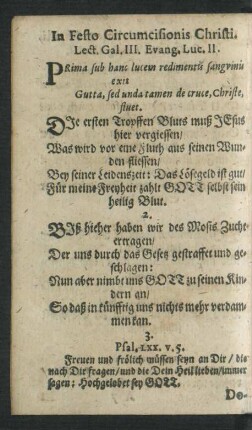 In Festo Circumcisionis Christi.
Lect. Gal. III. Evang. Luc. II.
PRima sub hanc lucem redimentis sangvinis
exit
Gutta, sed unda tamen de cruce, Christe,
fluet.
DIe ersten Tropffen Bluts muß JEsus
hier vergiessen/
Was wird vor eine Fluth aus seinen Wun-
den fliessen/
Bey seiner Leidenszeit: Das Lösegeld ist gut/
Für meine Freyheit zahlt GOTT selbst sein
heilig Blut.
2.
BIß hieher haben wir des Mosis Zucht
ertragen/
Der uns durch das Gesetz gestraffet und ge-
schlagen:
Nun aber nimbt uns GOTT zu seinen Kin-
dern an/
So daß in künfftig uns nichts mehr verdam-
men kan.
3.
Psal, LXX. v. 5.
Freuen und frölich müssen seyn an Dir / die
nach Dir fragen/ und die Dein Heil lieben/immer
sagen: Hochgelobet sey GOTT.
De-